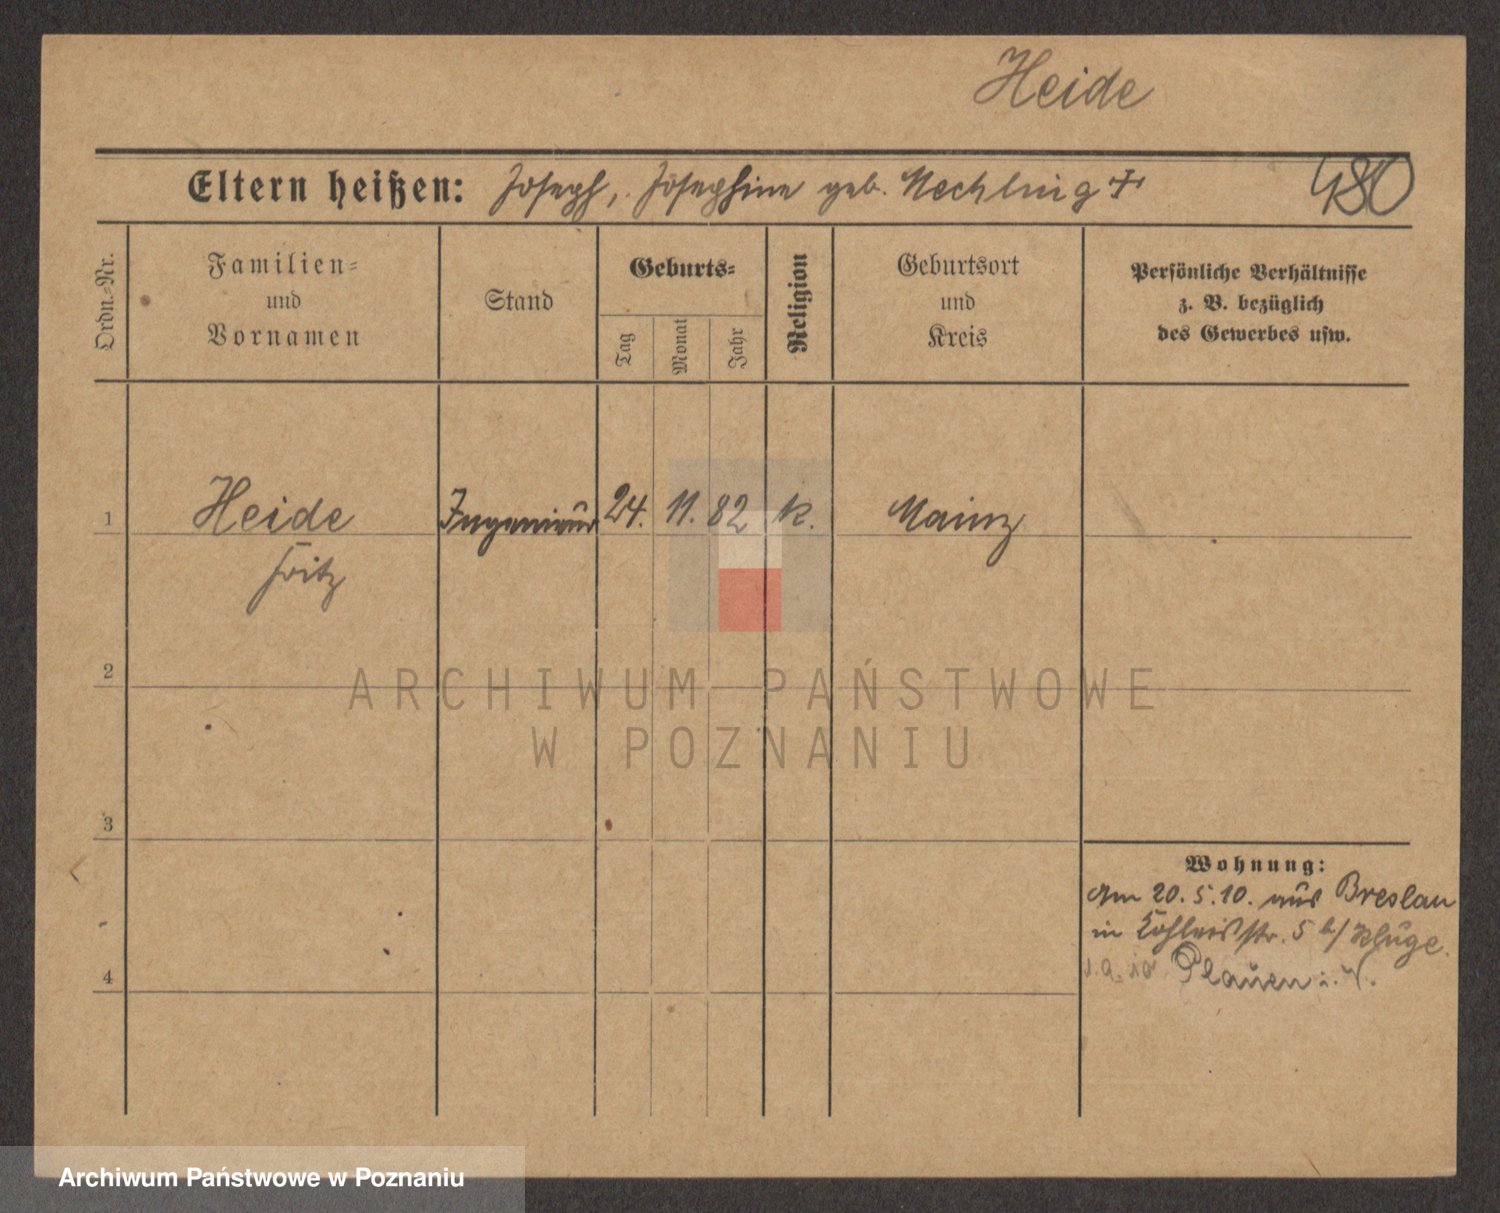 Heide
Eltern heißen: Joseph, Josephine geb. Mechling †
480
Ordn.-Nr.
Familien-
und
Vornamen
Stand
Geburts-
Tag
Monat
Jahr
Religion
Geburtsort
und
Kreis
Persönliche Verhältnisse
z. B. bezüglich
des Gewerbes usw.
1 Heide Ingenieur 24. 11. 82 k. Mainz
Fritz
2
ARCHIWUM PAŃSTWOWE
W POZNANIU
3
Wohnung:
Am 20.5.10. aus Breslau
in str. 5 b/ Kluge.
4
1.9.10 Plauen i. V.
Archiwum Państwowe w Poznaniu